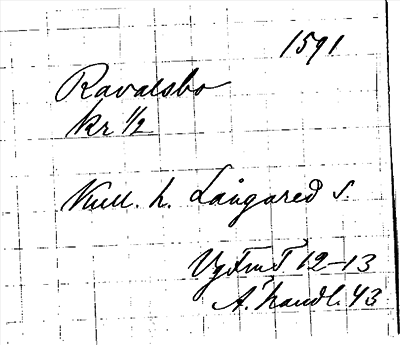 1591
Ravalsbo
kr 1/2
Kull. h. Långared s.
VgFmT 12-13
A. handl. 43